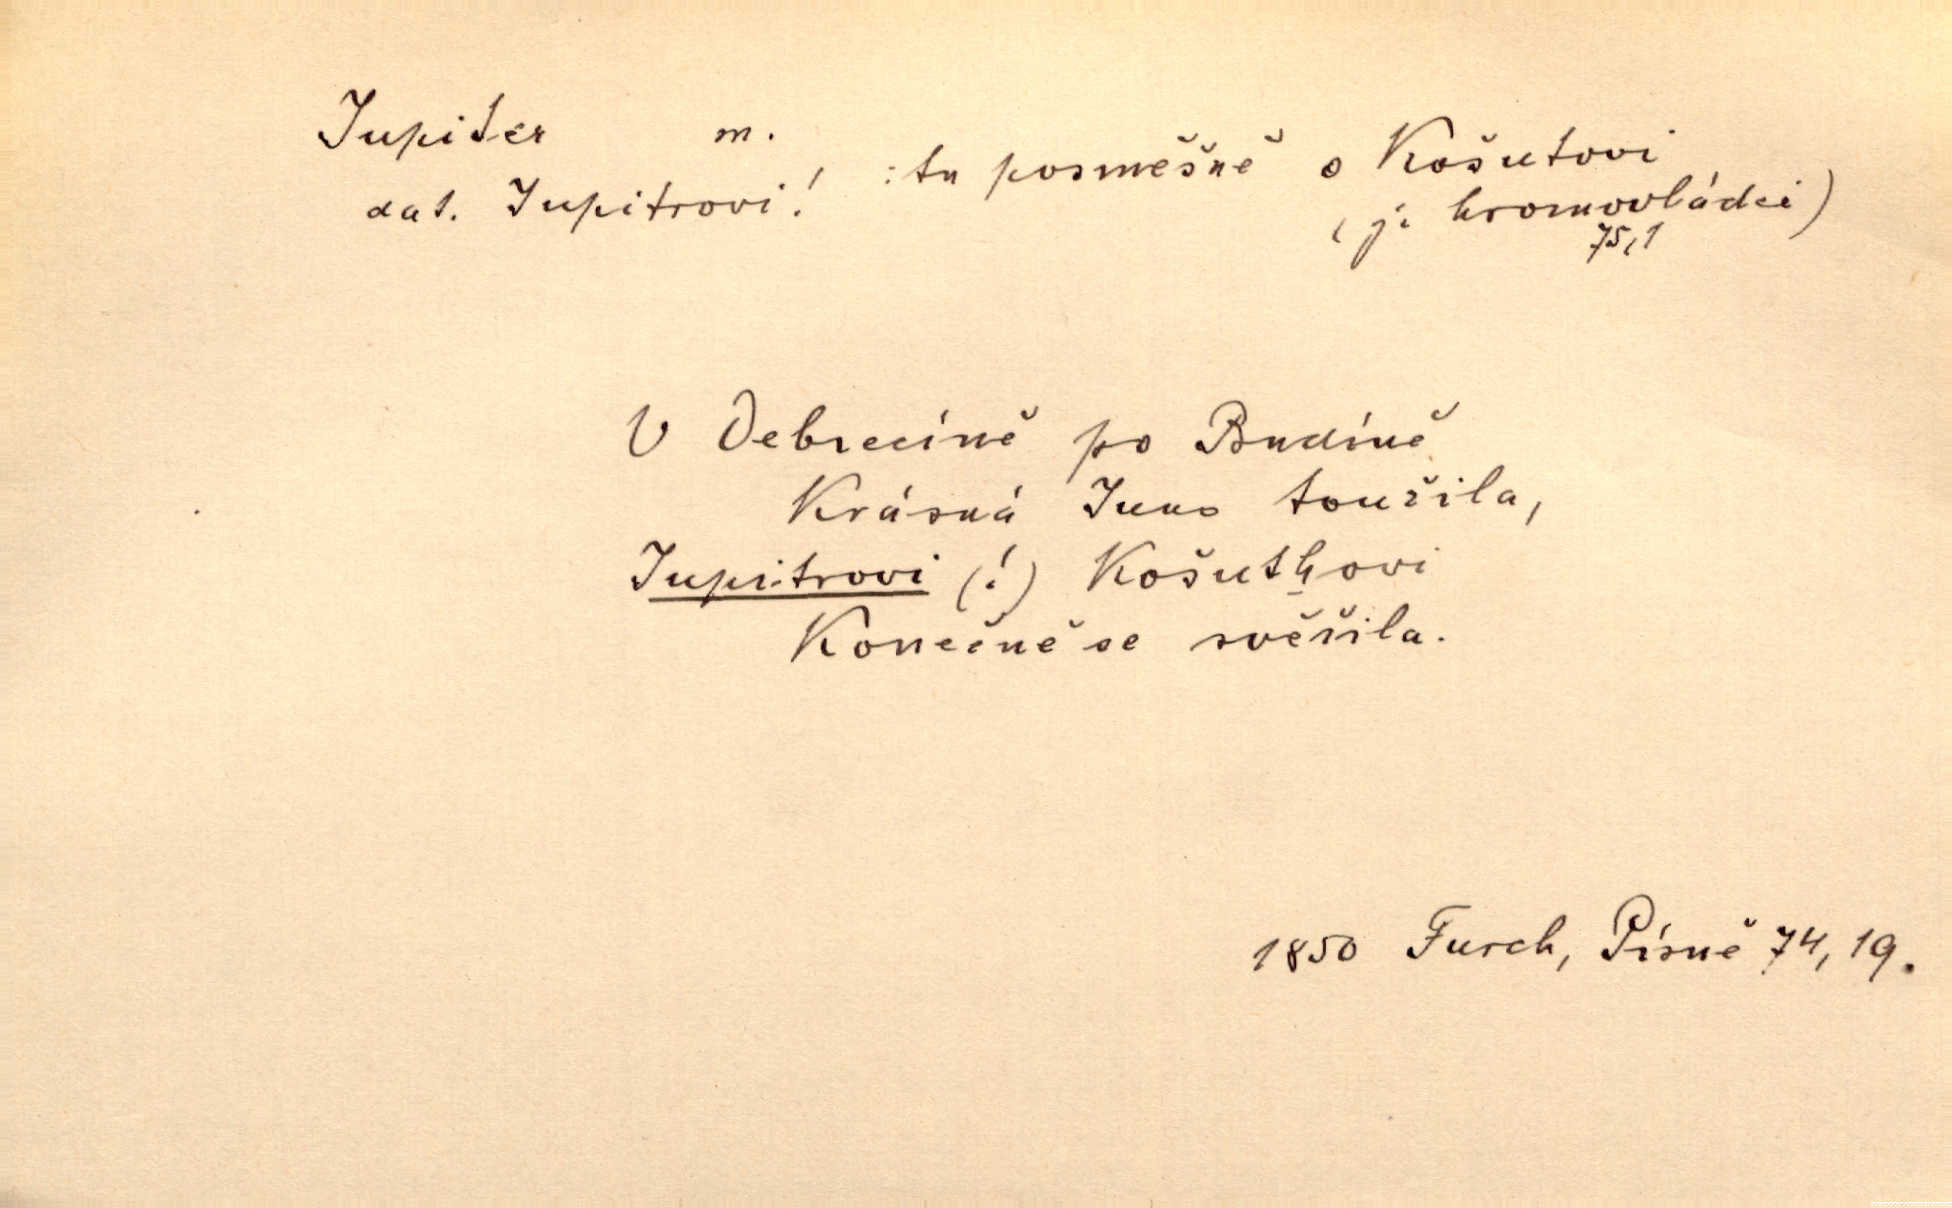 Jupiter m.
dat. Jupitrovi! : tu posměšně o Košutovi
(j. hromovládci)
75,1
V Debrecíně po Budíně
Krásná Juno toužila,
Jupitrovi (!) Košuthovi
Konečně se svěřila.
1850 Furch, Písně 74, 19.